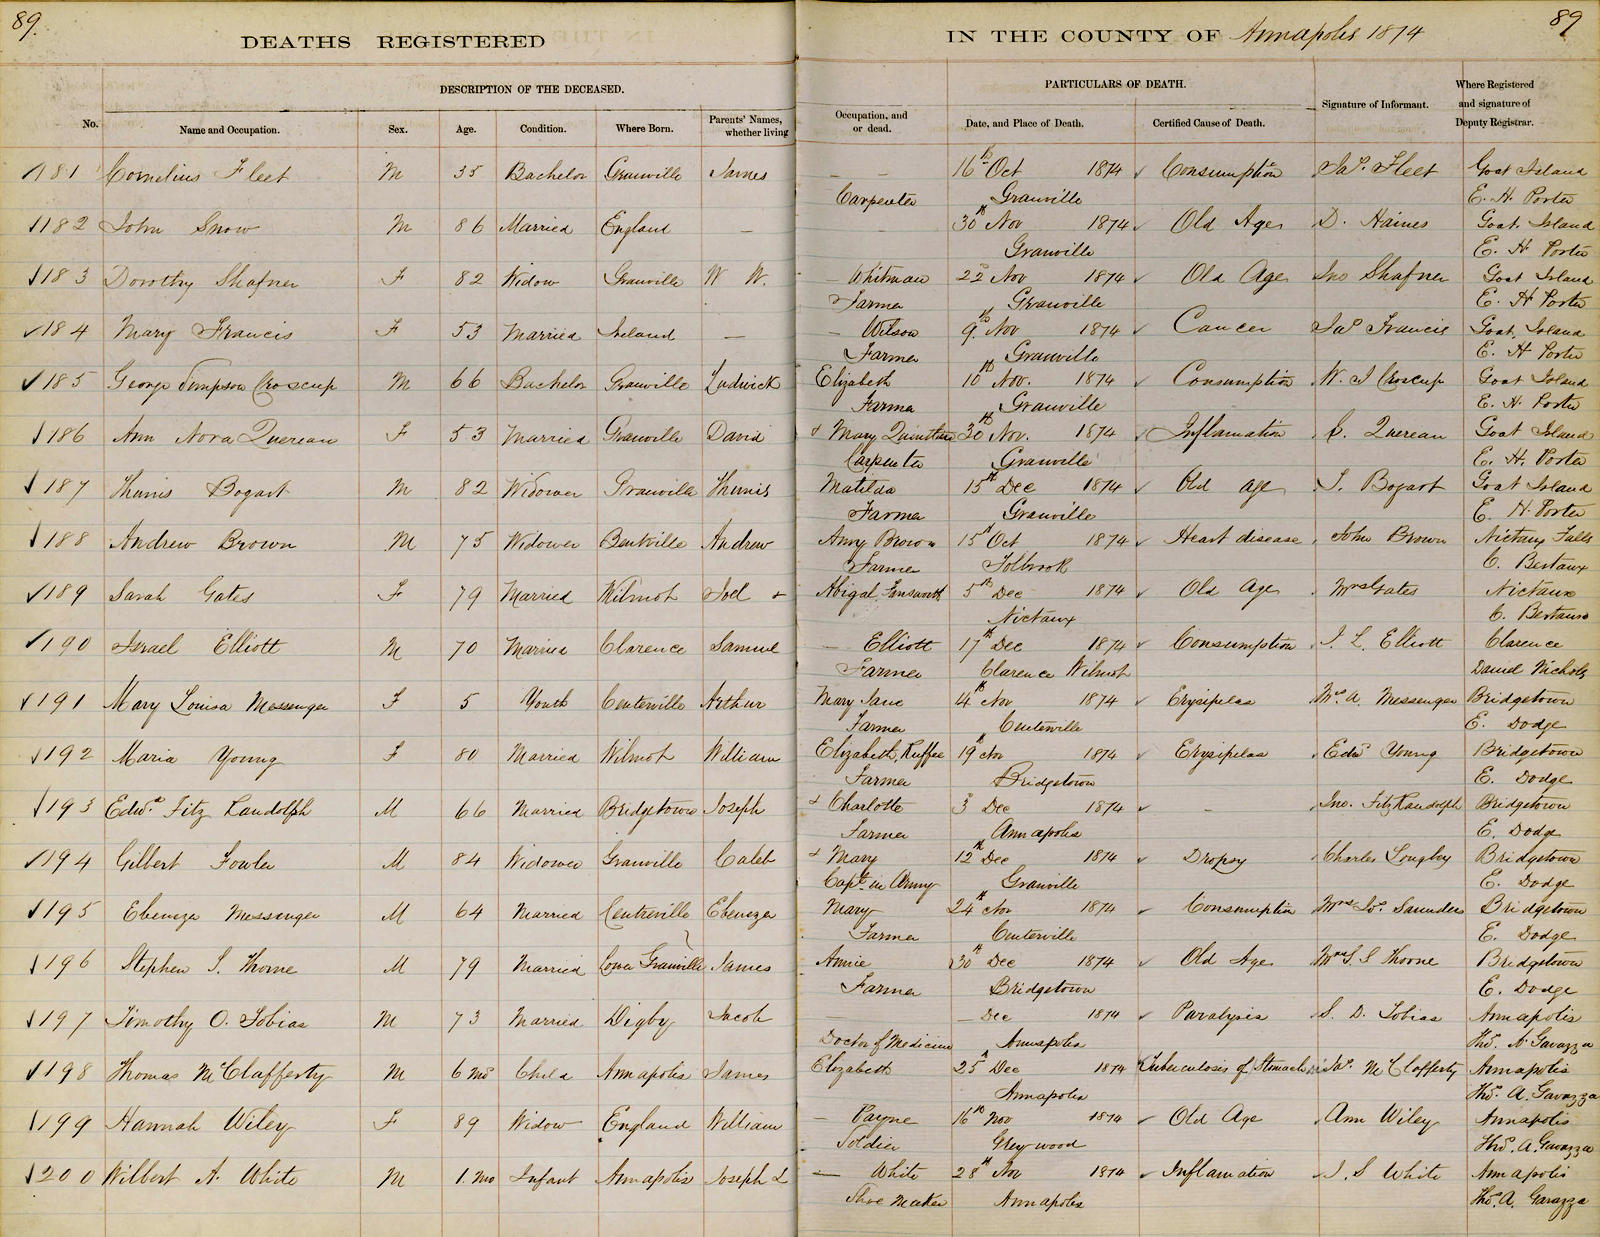 89. 89
DEATHS REGISTERED IN THE COUNTY OF Annapolis 1874
DESCRIPTION OF THE DECEASED. PARTICULARS OF DEATH.
No. Name and Occupation. Sex. Age. Condition. Where Born. Parents' Names, whether living Occupation, and or dead. Date, and Place of Death. Certified Cause of Death. Signature of Informant. Where Registered and signature of Deputy Registrar.
181 Cornelius Fleet M 35 Bachelor Granville James — — 16th Oct 1874 Consumption Jas. Fleet Goat Island
Carpenter Granville E. H. Porter
182 John Snow M 86 Married England — — — 30th Nov 1874 Old Age D. Haines Goat Island
Granville E. H Porter
183 Dorothy Shafner F 82 Widow Granville W W. — Whitman 22d Nov 1874 Old Age Jno Shafner Goat Island
Farmer Granville E. H Porter
184 Mary Francis F 53 Married Ireland — — Wilson 9th Nov 1874 Cancer Jas Francis Goat Island
Farmer Granville E. H Porter
185 George Simpson Croscup M 66 Bachelor Granville Ludwick Elizabeth 10th Nov. 1874 Consumption W. J Croscup Goat Island
Farmer Granville E. H. Porter
186 Ann Nora Quereau F 53 Married Granville David & Mary 30th Nov. 1874 Inflamation Quereau Goat Island
Carpenter Granville E. H. Porter
187 Thunis Bogart M 82 Widower Granville Thunis Matilda 15th Dec 1874 Old age Bogart Goat Island
Farmer Granville E. H. Porter
188 Andrew Brown M 75 Widower Bentville Andrew Amy Brown 15th Oct 1874 Heart disease John Brown Nictaux Falls
Farmer Tolbrook C. Bertaux
189 Sarah Gates F 79 Married Wilmot Joel & Abigal 5th Dec 1874 Old Age Mrs Gates Nictaux
Nictaux C. Bertaux
190 Israel Elliott M 70 Married Clarence Samuel — Elliott 17th Dec 1874 Consumption I. L. Elliott Clarence
Farmer Clarence Wilmot Daniel Nichols
191 Mary Louisa Messenger F 5 Youth Centerville Arthur Mary Jane 14th Nov 1874 Erysipelas Mrs. A. Messenger Bridgetown
Farmer Centerville E. Dodge
192 Maria Young F 80 Married Wilmot William Elizabeth Ruffee 19th Nov 1874 Erysipelas Edwd Young Bridgetown
Farmer Bridgetown E. Dodge
193 Edwd. Fitz Randolph M 66 Married Bridgetown Joseph & Charlotte 3d Dec 1874 — Jno. FitzRandolph Bridgetown
Farmer Annapolis E. Dodge
194 Gilbert Fowler M 84 Widower Granville Caleb & Mary 12th Dec 1874 Dropsy Charles Longley Bridgetown
Capt. in Army Granville E. Dodge
195 Ebenezer Messenger M 64 Married Centreville Ebenezer Mary 24th Nov 1874 Consumption Mrs Saunders Bridgetown
Farmer Centerville E. Dodge
196 Stephen S. Thorne M 79 Married Lower Granville James Annie 30th Dec 1874 Old Age Mrs S. S Thorne Bridgetown
Farmer Bridgetown E. Dodge
197 Timothy O. Tobias M 73 Married Digby Jacob — — Dec 1874 Paralysis S. D. Tobias Annapolis
Doctor of Medicine Annapolis Thos. A Gavazza
198 Thomas McClafferty M 6 mos Child Annapolis James Elizabeth 25th Dec 1874 Tuberculosis of Stomach Jas. McClafferty Annapolis
Annapolis Thos. A. Gavazza
199 Hannah Wiley F 89 Widow England William — Payne 16th Nov 1874 Old Age Ann Wiley Annapolis
Soldier Greywood Thos. A. Gavazza
200 Wilbert A. White M 1. mo Infant Annapolis Joseph L — White 28th Nov 1874 Inflamation J. S White Annapolis
Shoe Maker Annapolis Thos. A. Gavazza